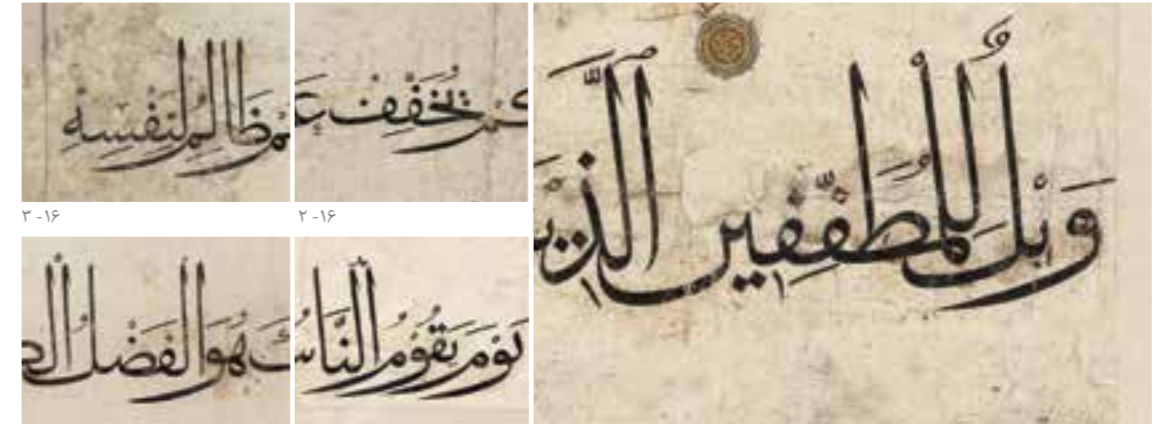 وَيْلٌ لِلْمُطَفِّفِين الَّذِين
يُخَفِّف
۲ -۱۶
ظَالِمٌ لِنَفْسِهِ
۳ -۱۶
يَوْمَ يَقُومُ النَّاسُ
هُوَ الْفَضْلُ